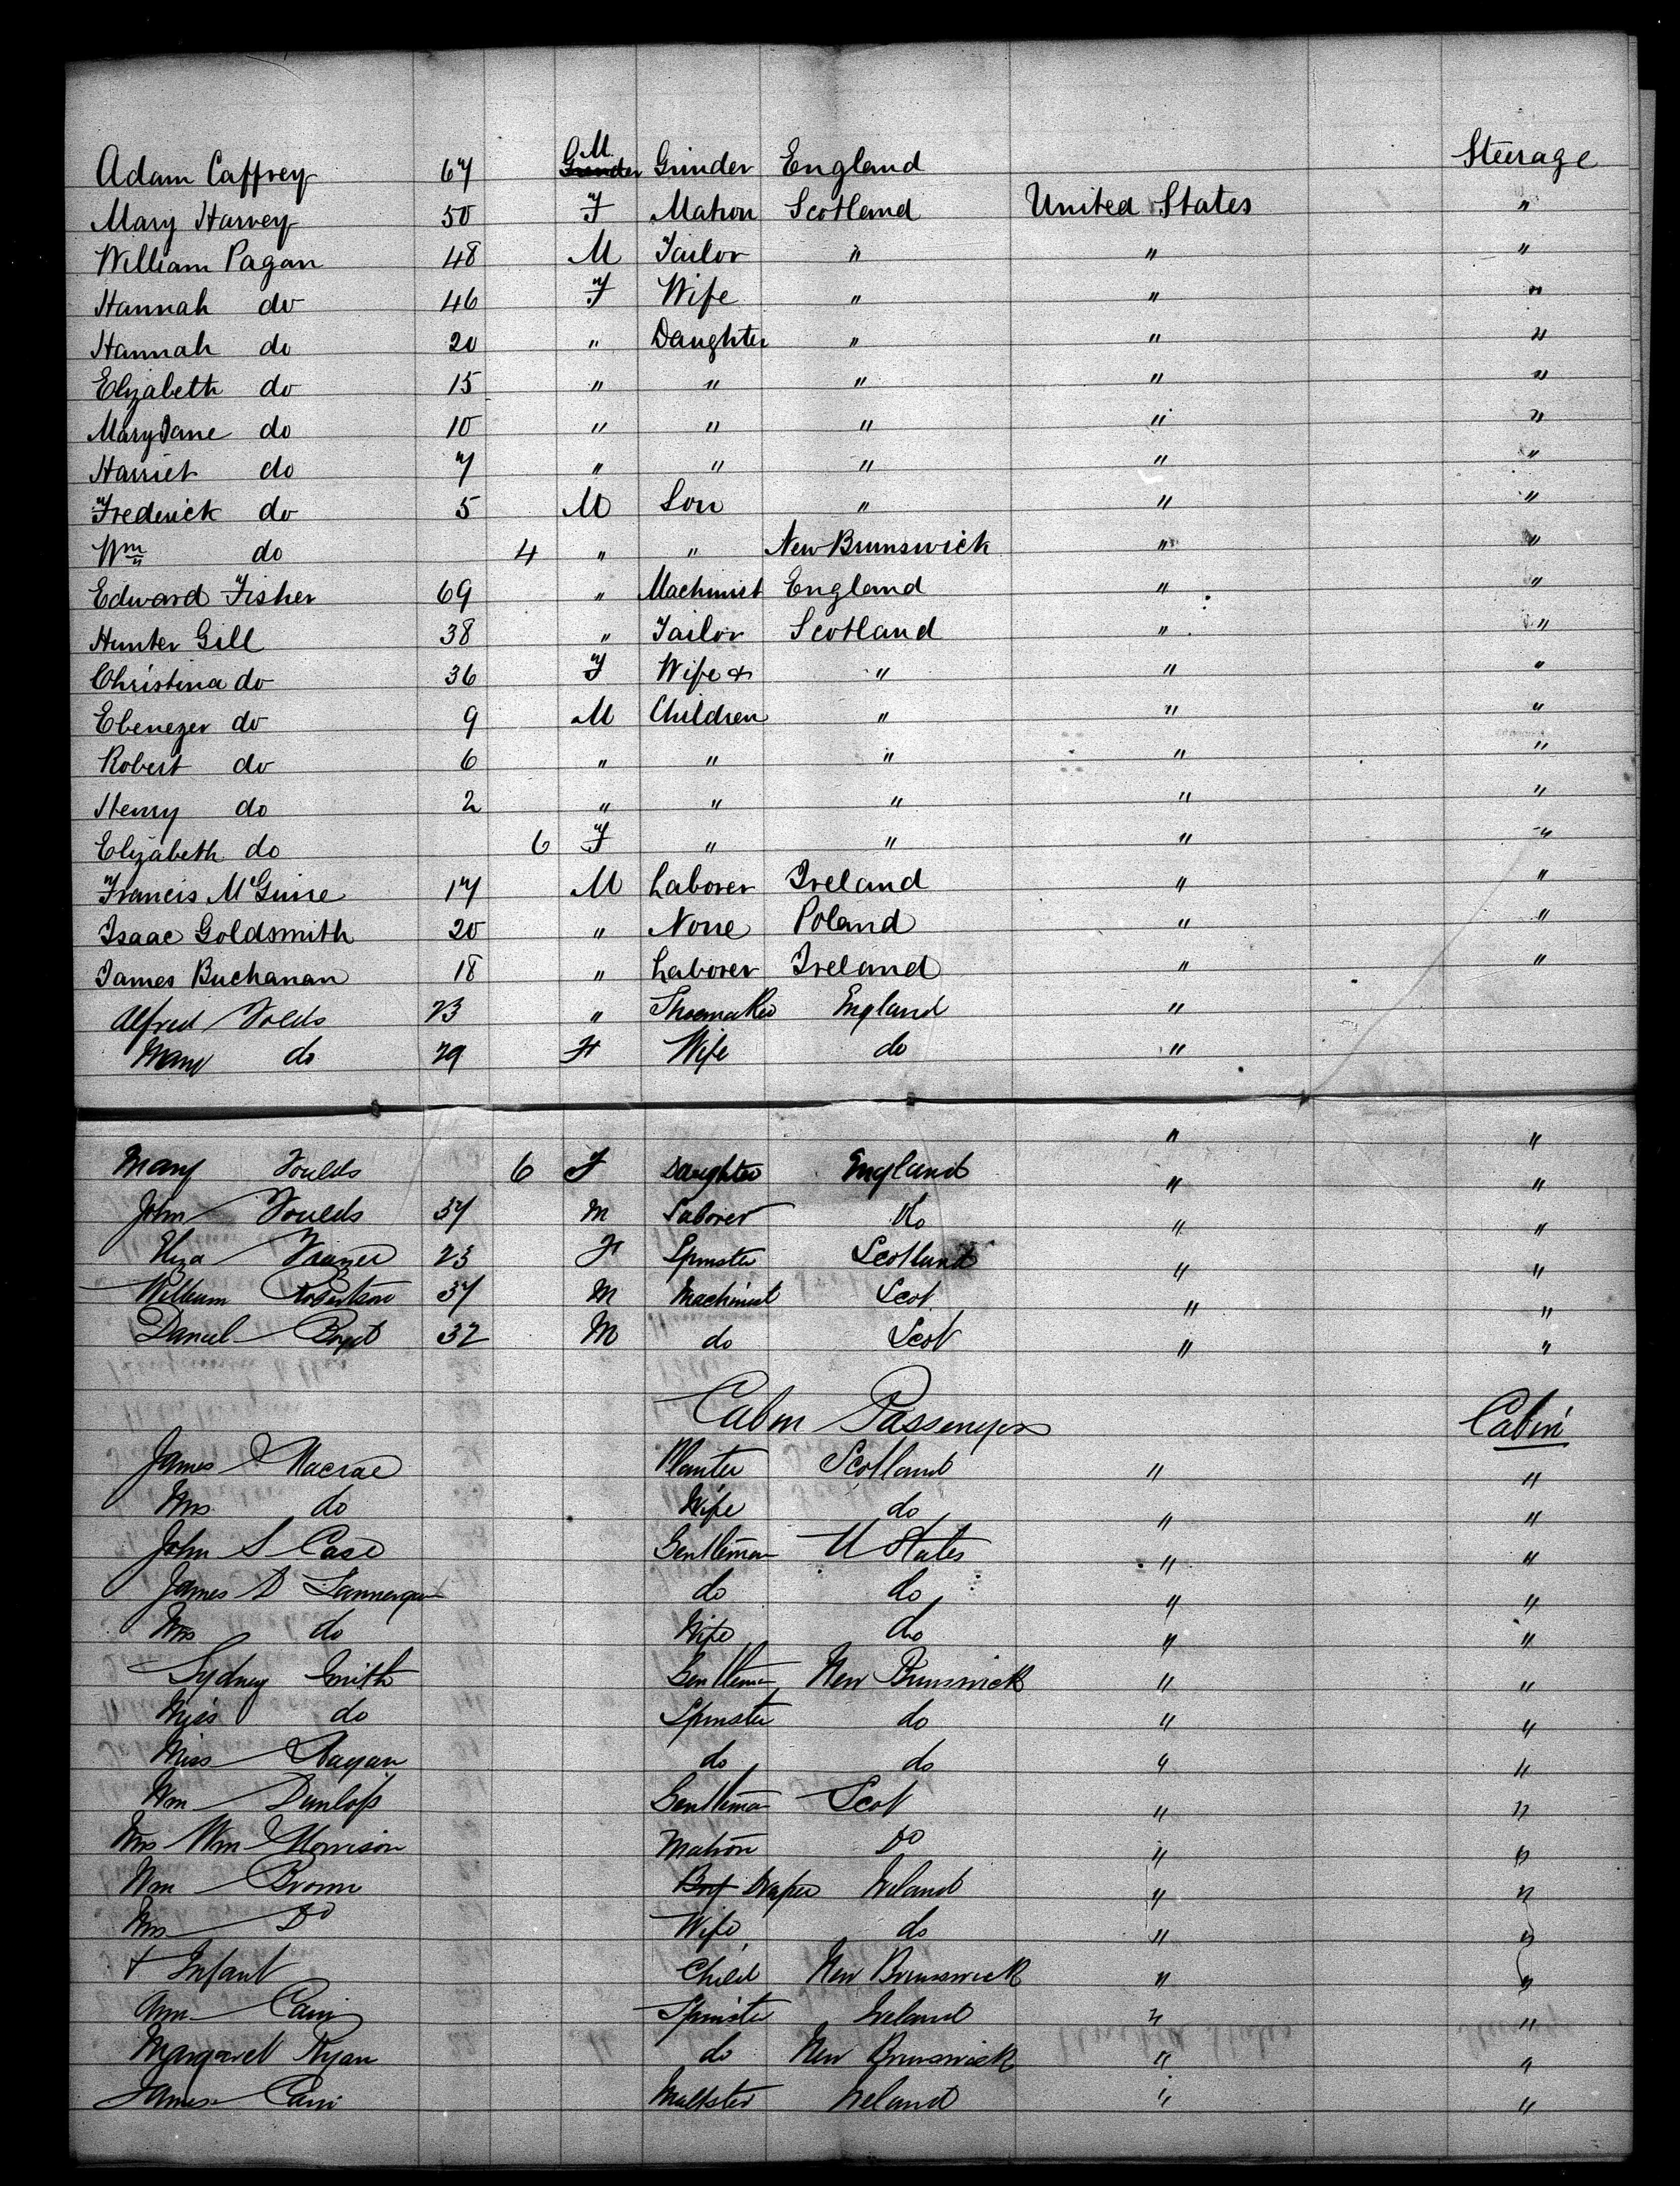 Adam Caffrey 67 M. Grinder Grinder England Steerage
Mary Harvey 50 F Matron Scotland United States "
William Pagan 48 M Tailor " " "
Hannah do 46 F Wife " " "
Hannah do 20 " Daughter " " "
Elizabeth do 15 " " " " "
Mary Jane do 10 " " " " "
Harriet do 7 " " " " "
Frederick do 5 M Son " " "
Wm do 4 " " New Brunswick " "
Edward Fisher 69 " Machinist England " "
Hunter Gill 38 " Tailor Scotland " "
Christina do 36 F Wife & " " "
Ebenezer do 9 M Children " " "
Robert do 6 " " " " "
Henry do 2 " " " " "
Elizabeth do 6 F " " " "
Francis McGuire 17 M Laborer Ireland " "
Isaac Goldsmith 20 " None Poland " "
James Buchanan 18 " Laborer Ireland " "
Alfred 23 " Shoemaker England "
Mary do 29 F Wife do "
" "
Mary Foulds 6 F Daughter England " "
John Foulds 37 M Laborer do " "
Eliza Frazer 23 F Spinster Scotland " "
William Robertson 37 M Machinist Scot " "
Daniel 32 M do Scot " "
Cabin Passengers Cabin
James Macrae Planter Scotland " "
Mrs do Wife do " "
John S Case Gentleman U States " "
James D do do " "
Mrs do Wife do " "
Sydney Smith Gentleman New Brunswick " "
Miss do Spinster do " "
Miss do do " "
Wm Dunlop Gentleman Scot " "
Mrs Wm Morrison Matron Do " "
Wm Brown Draper Ireland " "
Mrs Do Wife do " "
+ Infant Child New Brunswick " "
Ann Cain Spinster Ireland " "
Margaret Ryan do New Brunswick " "
James Cain Maltster Ireland " "